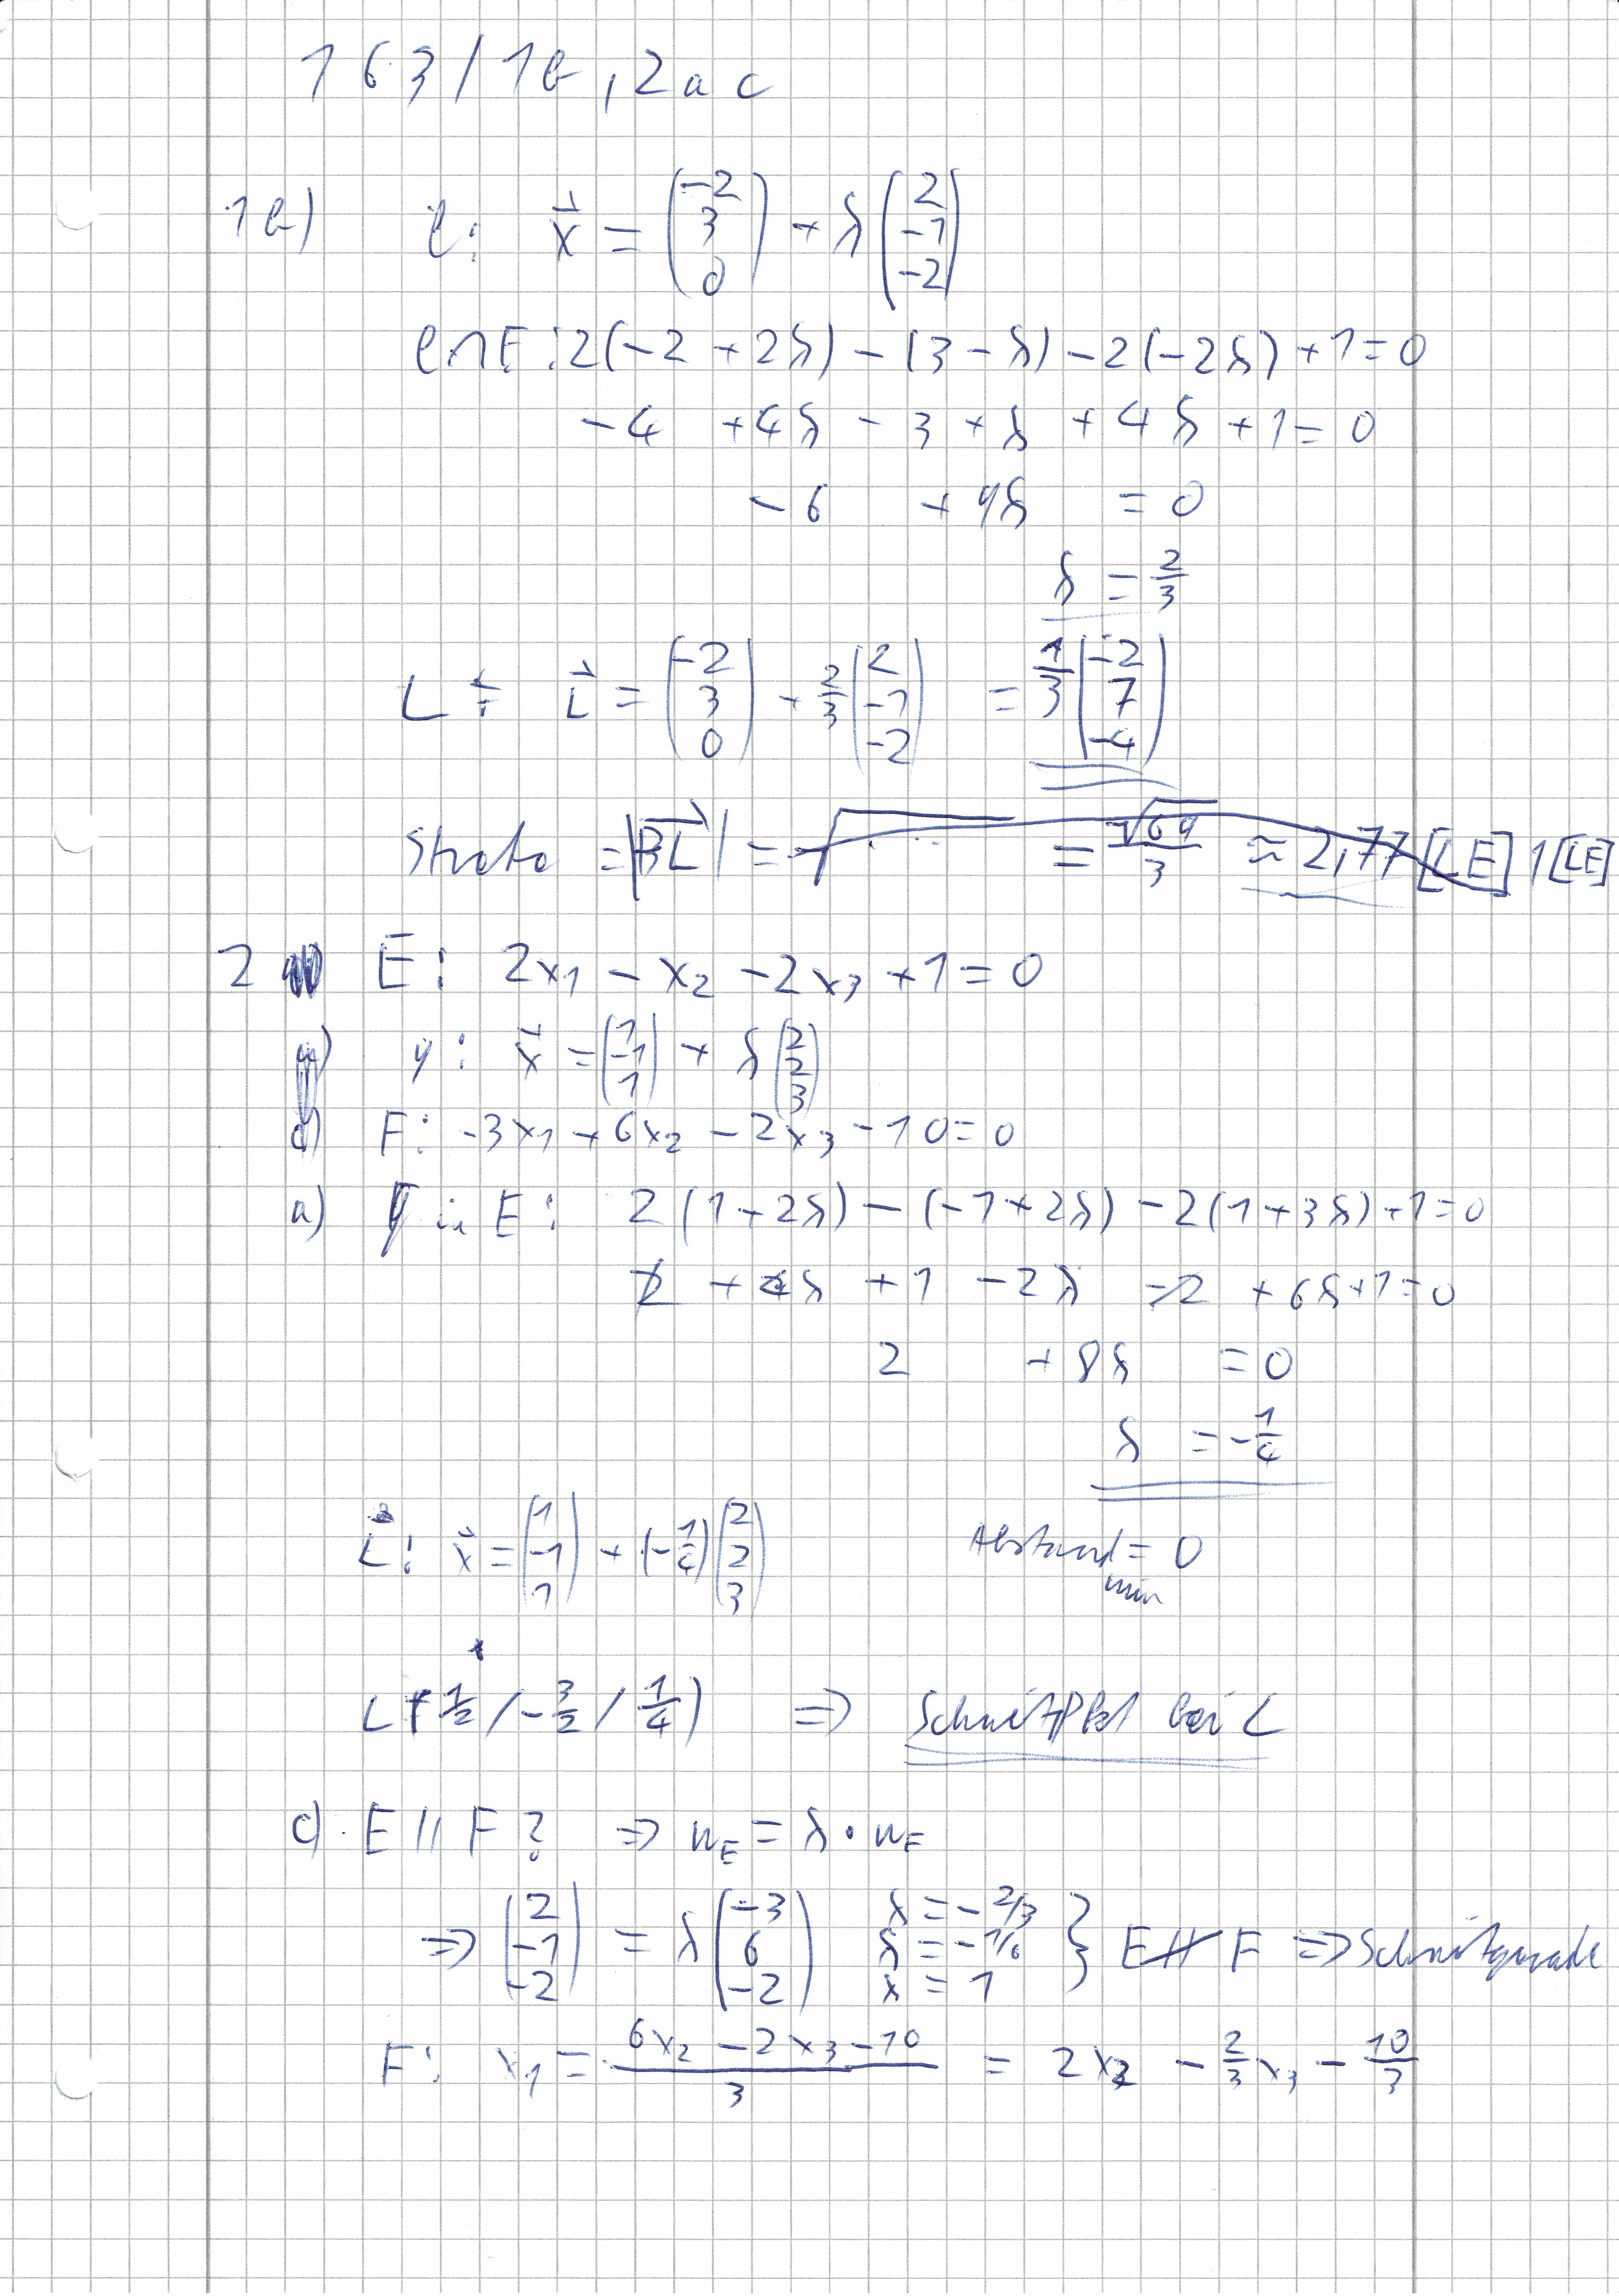 163/1b, 2ac
1b) l: x⃗ = (-2 3 0) + λ (2 -1 -2)
l∩E: 2(-2 + 2λ) - (3 - λ) - 2(-2λ) + 1 = 0
-4 + 4λ - 3 + λ + 4λ + 1 = 0
-6 + 9λ = 0
λ = 2/3
L: L⃗ = (-2 3 0) + 2/3 (2 -1 -2) = 1/3 (-2 7 -4)
= |BL⃗| = √ = √69/3 ≈ 2,77 [LE] 1 [LE]
2 E: 2x₁ - x₂ - 2x₃ + 1 = 0
a) g: x⃗ = (1 -1 1) + λ (2 2 3)
c) F: -3x₁ + 6x₂ - 2x₃ - 10 = 0
a) g in E: 2(1 + 2λ) - (-1 + 2λ) - 2(1 + 3λ) + 1 = 0
2 + 4λ + 1 - 2λ - 2 + 6λ + 1 = 0
2 + 8λ = 0
λ = -1/4
L⃗: x⃗ = (1 -1 1) + (-1/4) (2 2 3) Abstand min = 0
L (1/2 / -3/2 / 1/4) ⇒ SchnittPkt bei L
c) E ∥ F? ⇒ n_E = λ · n_F
⇒ (2 -1 -2) = λ (-3 6 -2) λ = -2/3 λ = -1/6 λ = 1 } E ∦ F ⇒ Schnittgerade
F: x₁ = (6x₂ - 2x₃ - 10)/3 = 2x₂ - 2/3 x₃ - 10/3